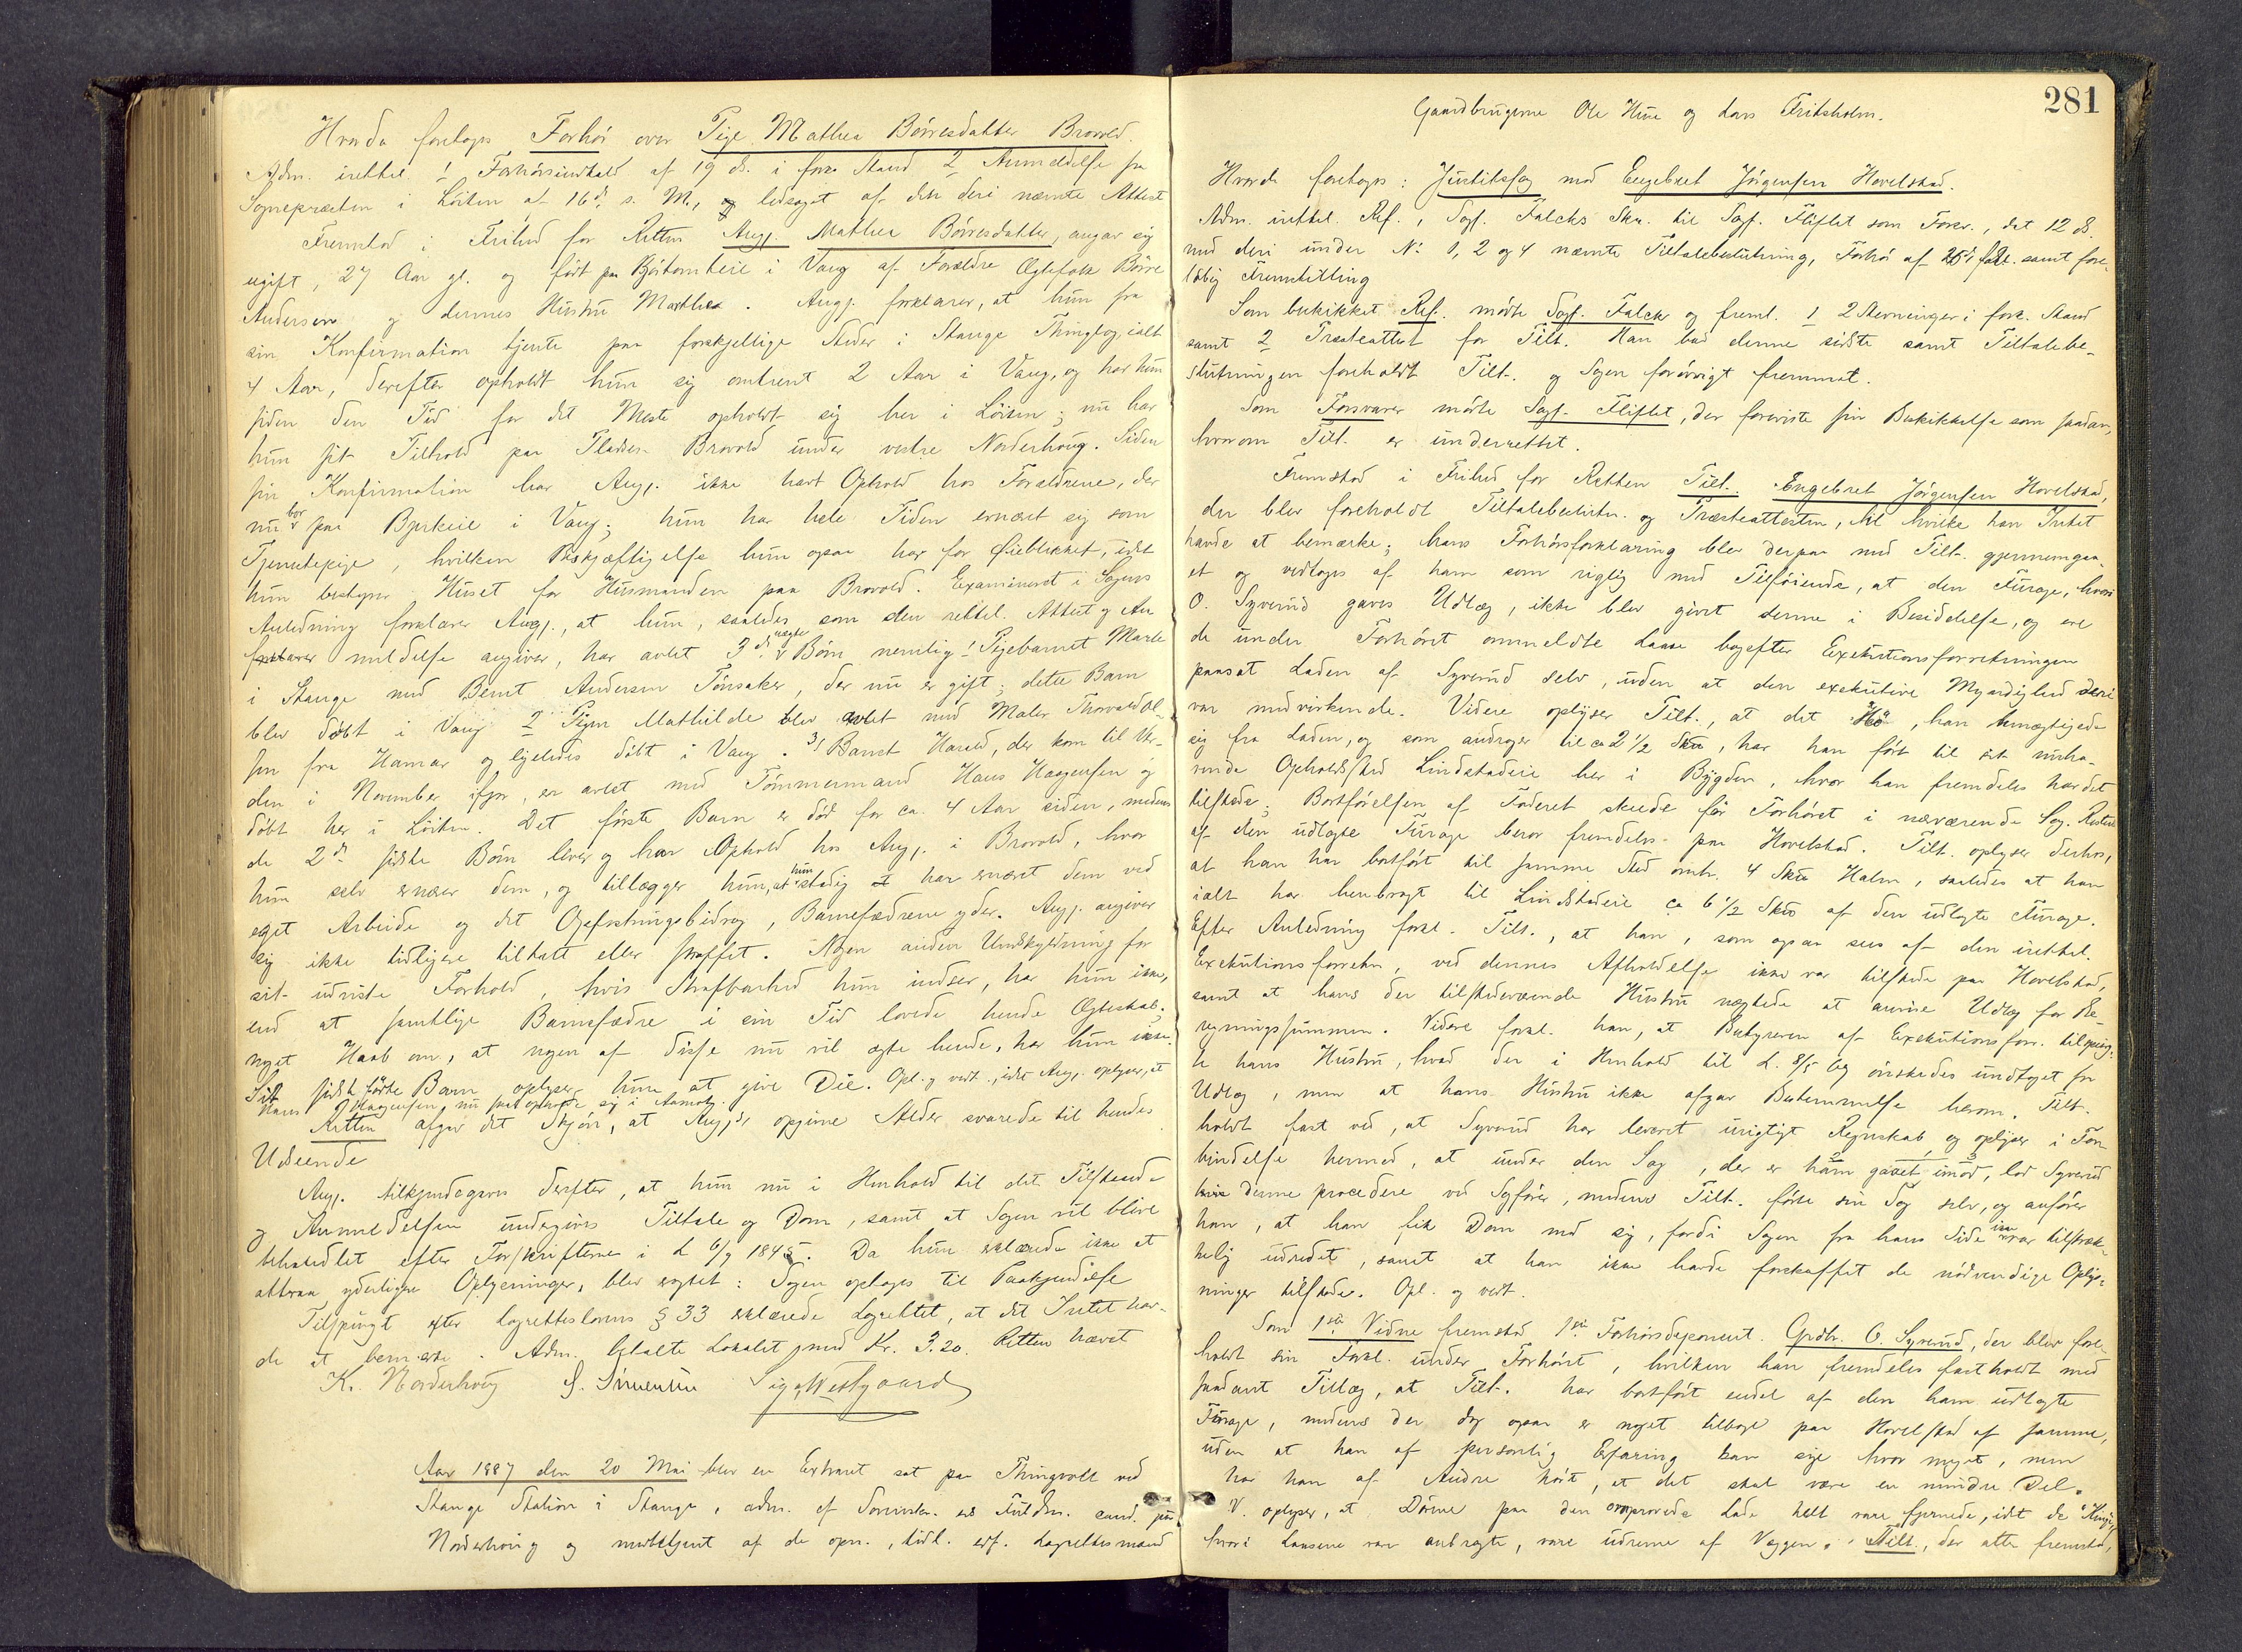 Hvorda foretoges Forhör over Pige Mathea Börresdatter Brovold.
Adm. irettel. 1 Forhörsindkald af 19 ds. i fork. Stand 2 Anmeldelse fra
Sognepræsten i Löiten af 16 ds. s. M., og ledsaget af den deri nævnte Attest
Fremstod i Frihed for Retten Angj. Mathea Börresdatter, angav sig
ugift, 27 Aar gl. og födt paa i Vang af Forældre Ægtefolk Börre
Andersen og dennes Hustru Marthea. Angj. forklarer, at hun fra
sin Konfirmation tjente paa forskjellige Steder i Stange Thinglag, ialt
4 Aar, derefter opholdt hun sig omtrent 2 Aar i Vang, og har hun
siden den Tid for det Meste opholdt sig her i Löiten; nu har
hun sit Tilhold paa Pladsen Brovold under vestre Norderhoug. Siden
sin Konfirmation har Angj. ikke havt Ophold hos Forældrene, der
nu bor paa Bjerkeie i Vang; hun har hele Tiden ernæret sig som
Tjenestepige, hvilken Beskjæftigelse hun ogsaa har for Öieblikket, idet
hun bestyrer Huset for Husmanden paa Brovold. Examineret i Sagens
Anledning forklarer Angj., at hun, saaledes som den rettel. Attest og An
forklarer meldelse angiver, har avlet 3 de uægte Börn nemlig 1 Pigebarnet Marte
i Stange med Bernt Andersen Tönsaker, der nu er gift; dette Barn
blev döbt i Vang 2 Pigen Mathilde blev avlet med Maler Thorvald Ol-
sen fra Hamar og ligeledes döbt i Vang. 3) Barnet Harald, der kom til Ver-
den i November ifjor, er avlet med Tömmermand Hans Haagensen og
döbt her i Löiten. Det förste Barn er död for ca. 4 Aar siden, medens
de 2 de sidste Börn lever og har Ophold hos Angj. i Brovold, hvor
hun selv ernærer dem, og tillægger hun, at hun stadig har ernæret dem ved
eget Arbeide og det Opfostringsbidrag, Barnefædrene yder. Angj. angiver
sig ikke tidligere tiltalt eller straffet. Nogen anden Undskyldning for
sit udviste Forhold, hvis Strafbarhed hun indser, har hun ikke,
end at samtlige Barnefædre i sin Tid lovede hende Ægteskab;
noget Haab om, at nogen af disse nu vil ægte hende, har hun ikke.
Sit sidst födte Barn oplyser hun at give Die. Opl. og vedt., idet Angj. oplyser, at
Hans Haagensen nu skal opholde sig i Aamot.
Retten afgav det Skjön, at Angj.s opgivne Alder svarede til hendes
Udseende
Angj. tilkjendegaves derefter, at hun nu i Henhold til det Tilstaaede
og Anmeldelsen undergives Tiltale og Dom, samt at Sagen vil blive
behandlet efter Forskrifterne i L 6/9 1845. Da hun erklærede ikke at
attraa yderligere Oplysninger, blev eragtet: Sagen optages til Paakjendelse
Tilspurgt efter Lagretteslovens § 33 erklærede Lagrettet, at det Intet hav-
de at bemærke. Adm. betalte Lokalet med Kr. 3.20. Retten hævet
K. Norderhoug S. Simensen Sig Westgaard

Aar 1887 den 20 Mai blev en Extraret sat paa Thingvolt ved
Stange Station i Stange, adm. af Sorenskr. ed Fuldm. cand. jur.
Norderhoug og medbetjent af de opn., tidl. edf. Lagrettesmænd
281
Gaardbrugerne Ole Huse og Lars Fritsholm.
Hvorda foretoges: Justitssag mod Engebret Jörgensen Hovelstad.
Adm. irettel. Ref., Sagf. Falcks Skr. til Sagf. Fliflet som Forsv., dat 12 ds.
med deri under No 1, 2 og 4 nævnte Tiltalebeslutning, Forhör af 25 samt fore-
löbig Fremstilling
Som beskikket Ref. mödte Sagf. Falck og freml. 1 2 Stevninger i fork. Stand
samt 2 Præsteattest for Tilt. Han bad denne sidste samt Tiltalebe-
slutningen foreholdt Tilt. og Sagen forövrigt fremmet.
Som Forsvarer mödte Sagf. Fliflet, der foreviste sin Beskikkelse som saadan,
hvorom Tilt. er underrettet.
Fremstod i Frihed for Retten Tilt. Engebret Jörgensen Hovelstad,
der blev foreholdt Tiltalebeslutn. og Præsteattesten, til hvilke han Intet
havde at bemærke; hans Forhörsforklaring blev derpaa med Tilt. gjennemgaa-
et og vedtoges af ham som rigtig med Tilföiende, at den Furage, hvori
O. Syverud gaves Udlæg, ikke blev givet denne i Besiddelse, og ere
de under Forhöret ommeldte Laase bagefter Exekutionsforretningen
paasat Laden af Syverud selv, uden at den exekutive Myndighed deri
var medvirkende. Videre oplyser Tilt., at det "Hö", han bemægtigede
sig fra Laden, og som andrager til ca 2 1/2 Sktu, har han fört til sit nuhæ-
rende Opholdssted Lindstadeie her i Bygden, hvor han fremdeles har det
tilstede; Bortförelsen af Foderet skede för Forhöret i nærværende Sag. Resten
af den udlagte Furage beror fremdeles paa Hovelstad. Tilt. oplyser derhos,
at han har bortfört til samme Sted omtr. 4 Sktu Halm, saaledes at han
ialt har henbragt til Lindstadeie ca 6 1/2 Sktu af den udlagte Furage.
Efter Anledning forkl. Tilt., at han, som ogsaa sees af den irettel.
Exekutionsforretn., ved dennes Afholdelse ikke var tilstede paa Hovelstad,
samt at hans der tilstedeværende Hustru nægtede at anvise Udlæg for Re-
gningssummen. Videre forkl. han, at Bestyreren af Exekutionsforr. tilspurg-
te hans Hustru, hvad der i Henhold til L. 8/5 69 önskedes undtaget fra
Udlæg, men at hans Hustru ikke afgav Bestemmelse herom. Tilt.
holdt fast ved, at Syverud har leveret urigtigt Regnskab, og oplyser i For-
bindelse hermed, at under den Sag, der er ham gaaet imod, lod Syverud
denne procedere ved Sagförer, medens Tilt. förte sin Sag selv, og anförer
han, at han fik Dom mod sig, fordi Sagen fra hans Side ikke var tilstræk-
kelig udredet, samt at han ikke havde forskaffet de nödvendige Oplys-
ninger tilstede. Opl. og vedt.
Som 1ste Vidne fremstod 1ste Forhörsdeponent Grdbr. O. Syverud, der blev fore-
holdt sin Forkl. under Forhöret, hvilken han fremdeles fastholdt med
saadant Tillæg, at Tilt. har bortfört endel af den ham udlagte
Furage, medens der dog ogsaa er noget tilbage paa Hovelstad af samme,
uden at han af personlig Erfaring kan sige hvor meget, men
har han af Andre hört, at det skal være en mindre Del.
V. oplyser, at Dörene paa den omprovede Lade helt vare fjernede, idet de "Kinge",
hvori Laasene var anbragte, vare udrevne af Væggen. Tilt., der atter fremstod,